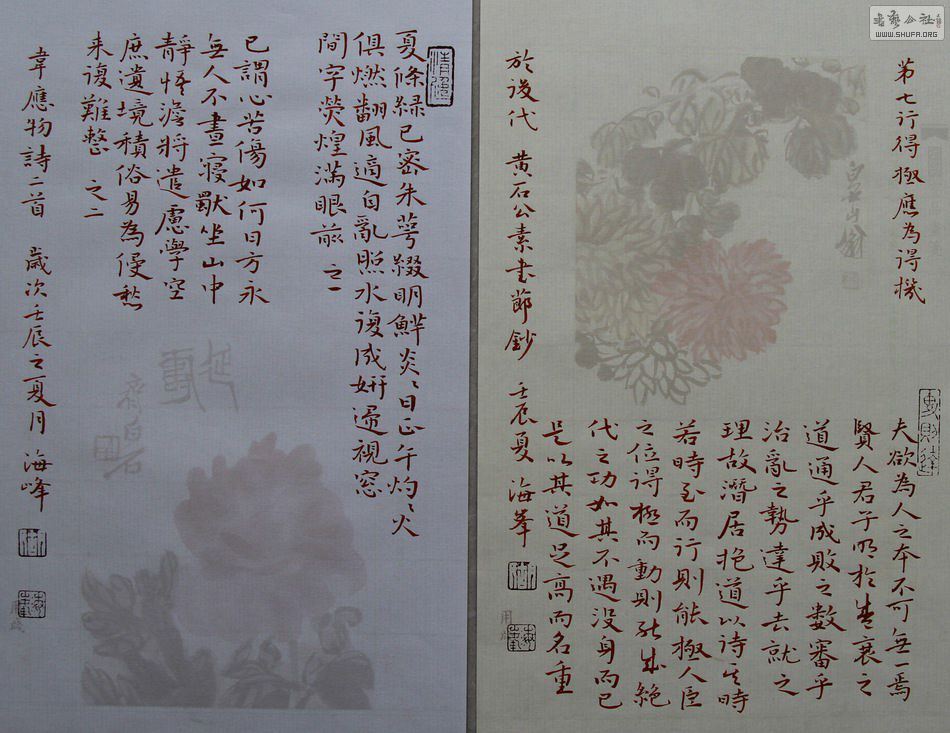 書藝公社
WWW.SHUFA.ORG
第七行得極應為得機
白石山翁
夫欲為人之本不可無一焉
賢人君子明於盛衰之
道通乎成敗之數審乎
治亂之勢達乎去就之
理故潛居抱道以待其時
若時至而行則能極人臣
之位得極而動則能成絕
代之功如其不遇沒身而已
是以其道足高而名重
於後代 黃石公素書節鈔 壬辰夏 海峯
夏條緑已密朱萼綴明鮮炎〻日正午灼〻火
俱燃翻風適自亂照水復成妍還視窓
間字熒煌滿眼前 之一
已謂心苦傷如何日方永
無人不晝寢獸坐山中
靜悟澹將遣慮學空
庶遺境積俗易為侵愁
来復難整 之二
韋應物詩二首 歲次壬辰之夏月 海峰
齊白石